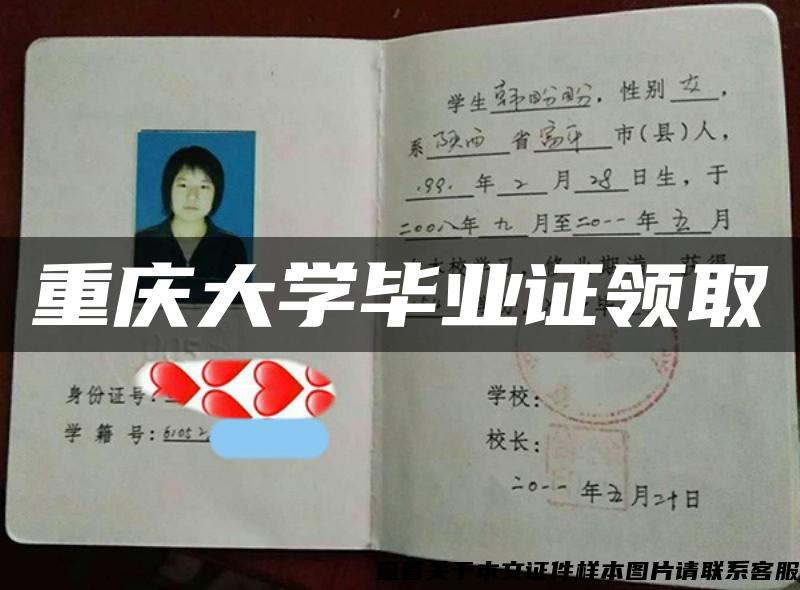 学生韩盼盼，性别女，
系陕西省富平市(县)人，
1991年2月28日生，于
二00八年九月至二0一一年五月
重庆大学毕业证领取
身份证号：
学籍号：61052
学校：
校长：
二0一一年五月二十日
查看关于本文证件样本图片请联系客服